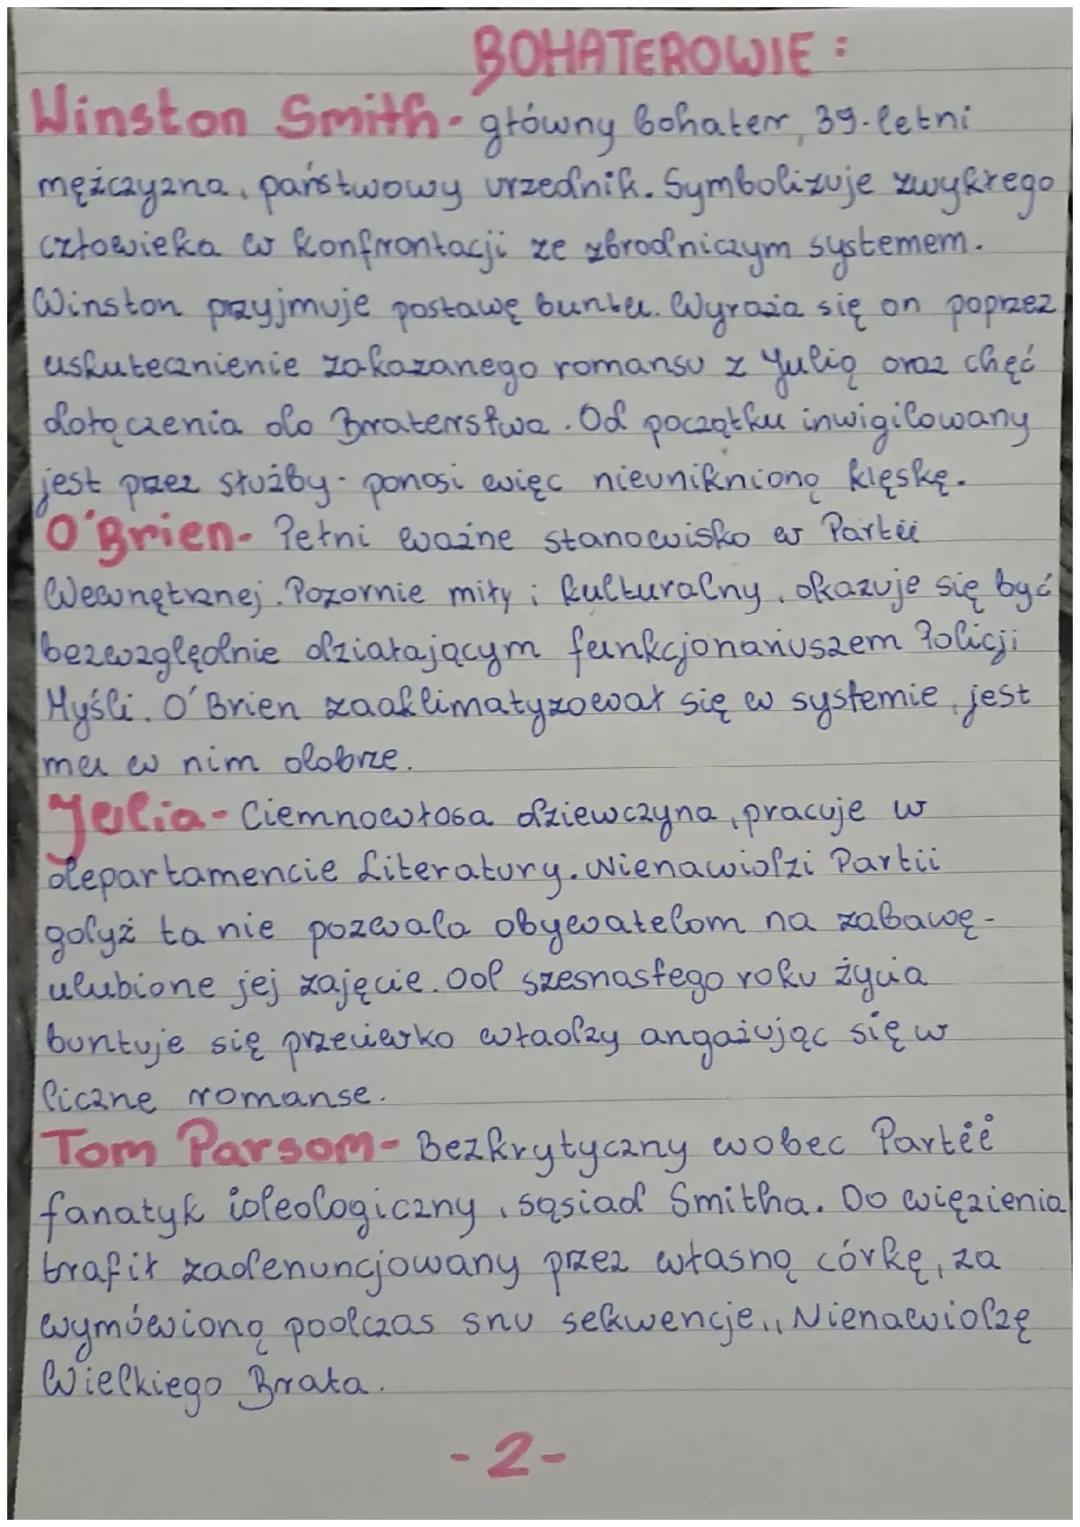 BOHATEROWIE:
Winston Smith- główny bohater, 39-letni
mężczyzna, państwowy urzednik. Symbolizuje zwykłego
człowieka w konfrontacji ze zbrodniczym systemem.
Winston przyjmuje postawę buntu. Wyraża się on poprzez
uskutecznienie zakazanego romansu z Julią oraz chęć
dołączenia do Braterstwa. Od początku inwigilowany
jest przez służby- ponosi więc nieuniknioną klęskę.
O'Brien- Pełni ważne stanowisko w Partii
Wewnętrznej. Pozornie miły i kulturalny, okazuje się być
bezwzględnie działającym funkcjonariuszem Policji
Myśli. O'Brien zaaklimatyzował się w systemie, jest
mu w nim dobrze.
Julia- Ciemnowłosa dziewczyna, pracuje w
departamencie Literatury. Nienawidzi Partii
gdyż ta nie pozwala obywatelom na zabawę-
ulubione jej zajęcie. Od szesnastego roku życia
buntuje się przeciwko władzy angażując się w
liczne romanse.
Tom Parsom- Bezkrytyczny wobec Partii
fanatyk ideologiczny, sąsiad Smitha. Do więzienia
trafił zadenuncjowany przez własną córkę, za
wymówioną podczas snu sekwencje,, Nienawidzę
Wielkiego Brata.
-2-